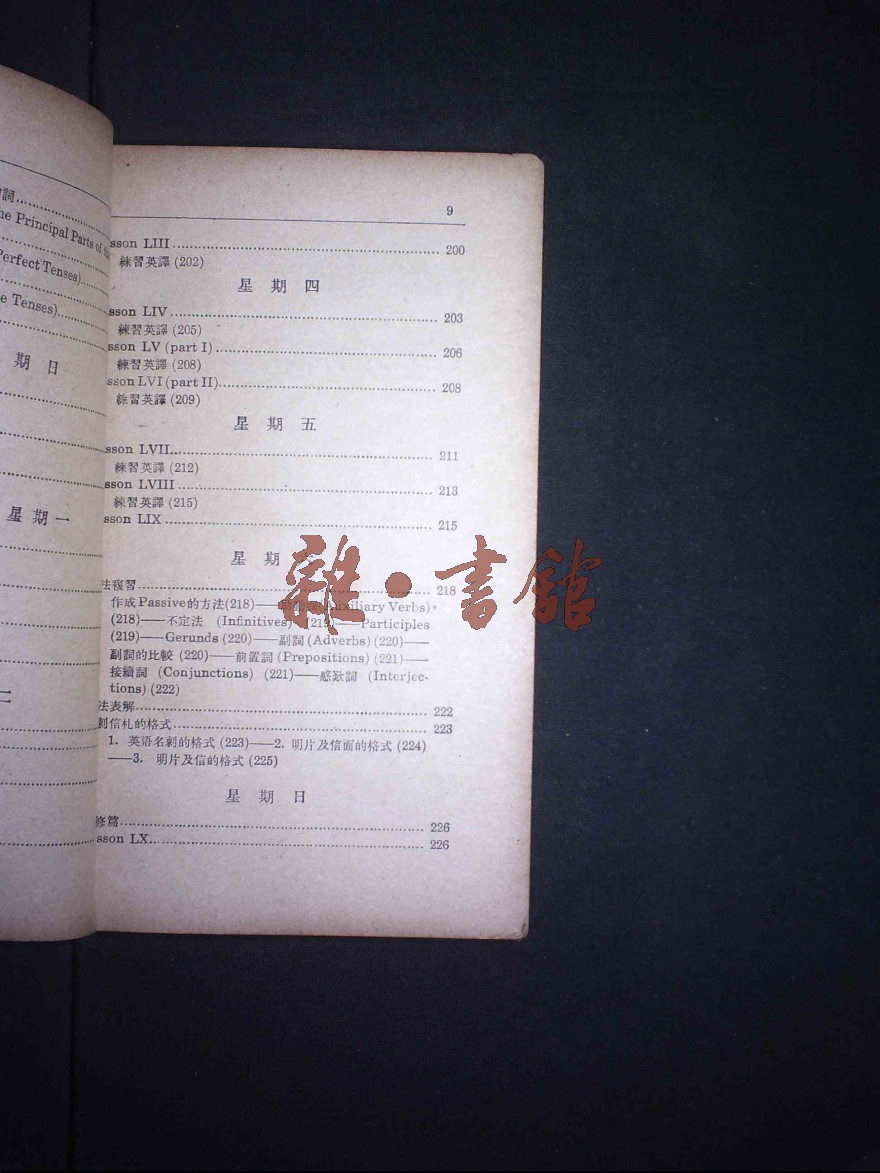 詞
he Principal Parts of
Perfect Tenses)
e Tenses)
期 日
星 期 一
二
9
sson LIII 200
練習英譯 (202)
星 期 四
sson LIV 203
練習英譯 (205)
sson LV (part I) 206
練習英譯 (208)
sson LVI (part II) 208
練習英譯 (209)
星 期 五
sson LVII 211
練習英譯 (212)
sson LVIII 213
練習英譯 (215)
sson LIX 215
星 期
法複習 218
作成 Passive 的方法(218)——助動詞(Auxiliary Verbs)
(218)——不定法 (Infinitives) (219)——Participles
(219)——Gerunds (220)——副詞 (Adverbs) (220)——
副詞的比較 (220)——前置詞 (Prepositions) (221)——
接續詞 (Conjunctions) (221)——感歎詞 (Interjec-
tions) (222)
法表解 222
刺信札的格式 223
1. 英语名刺的格式 (223)——2. 明片及信面的格式 (224)
——3. 明片及信的格式 (225)
星 期 日
修篇 226
sson LX 226
雜·書館